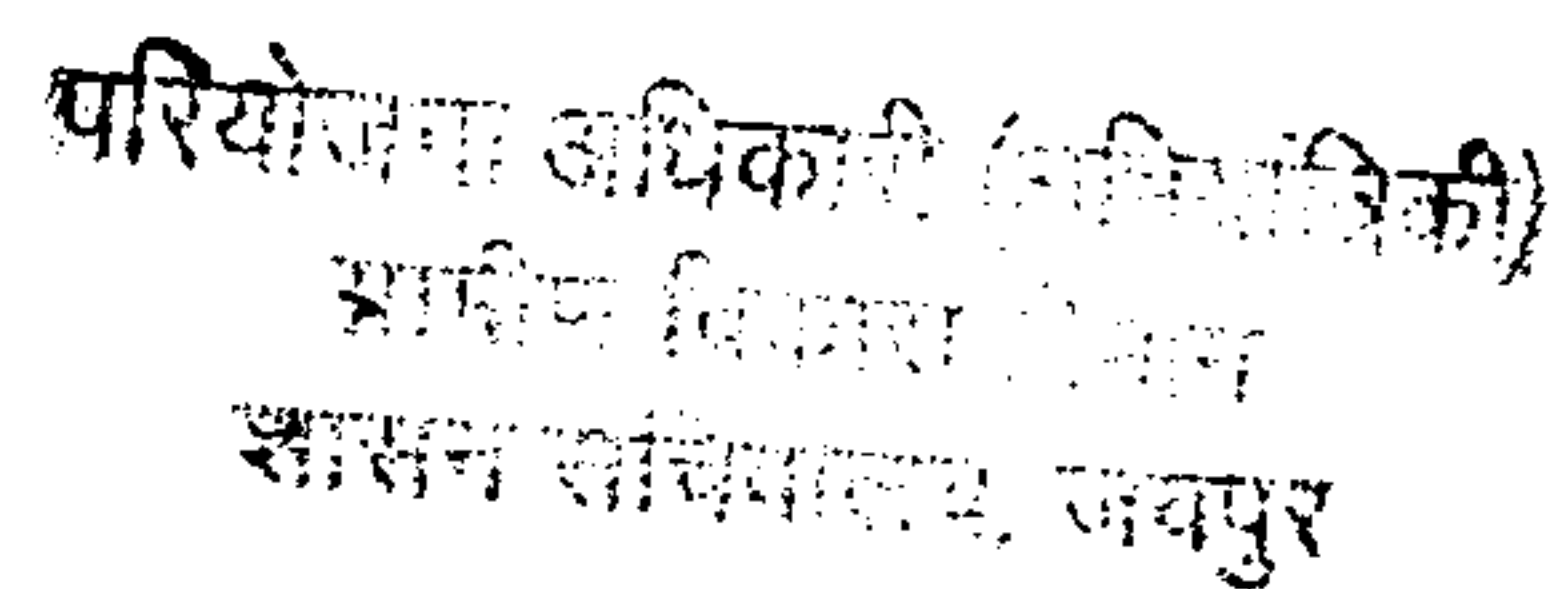 परियोजना अधिकारी (अभियांत्रिकी)
ग्रामीण विकास विभाग
शासन सचिवालय, जयपुर